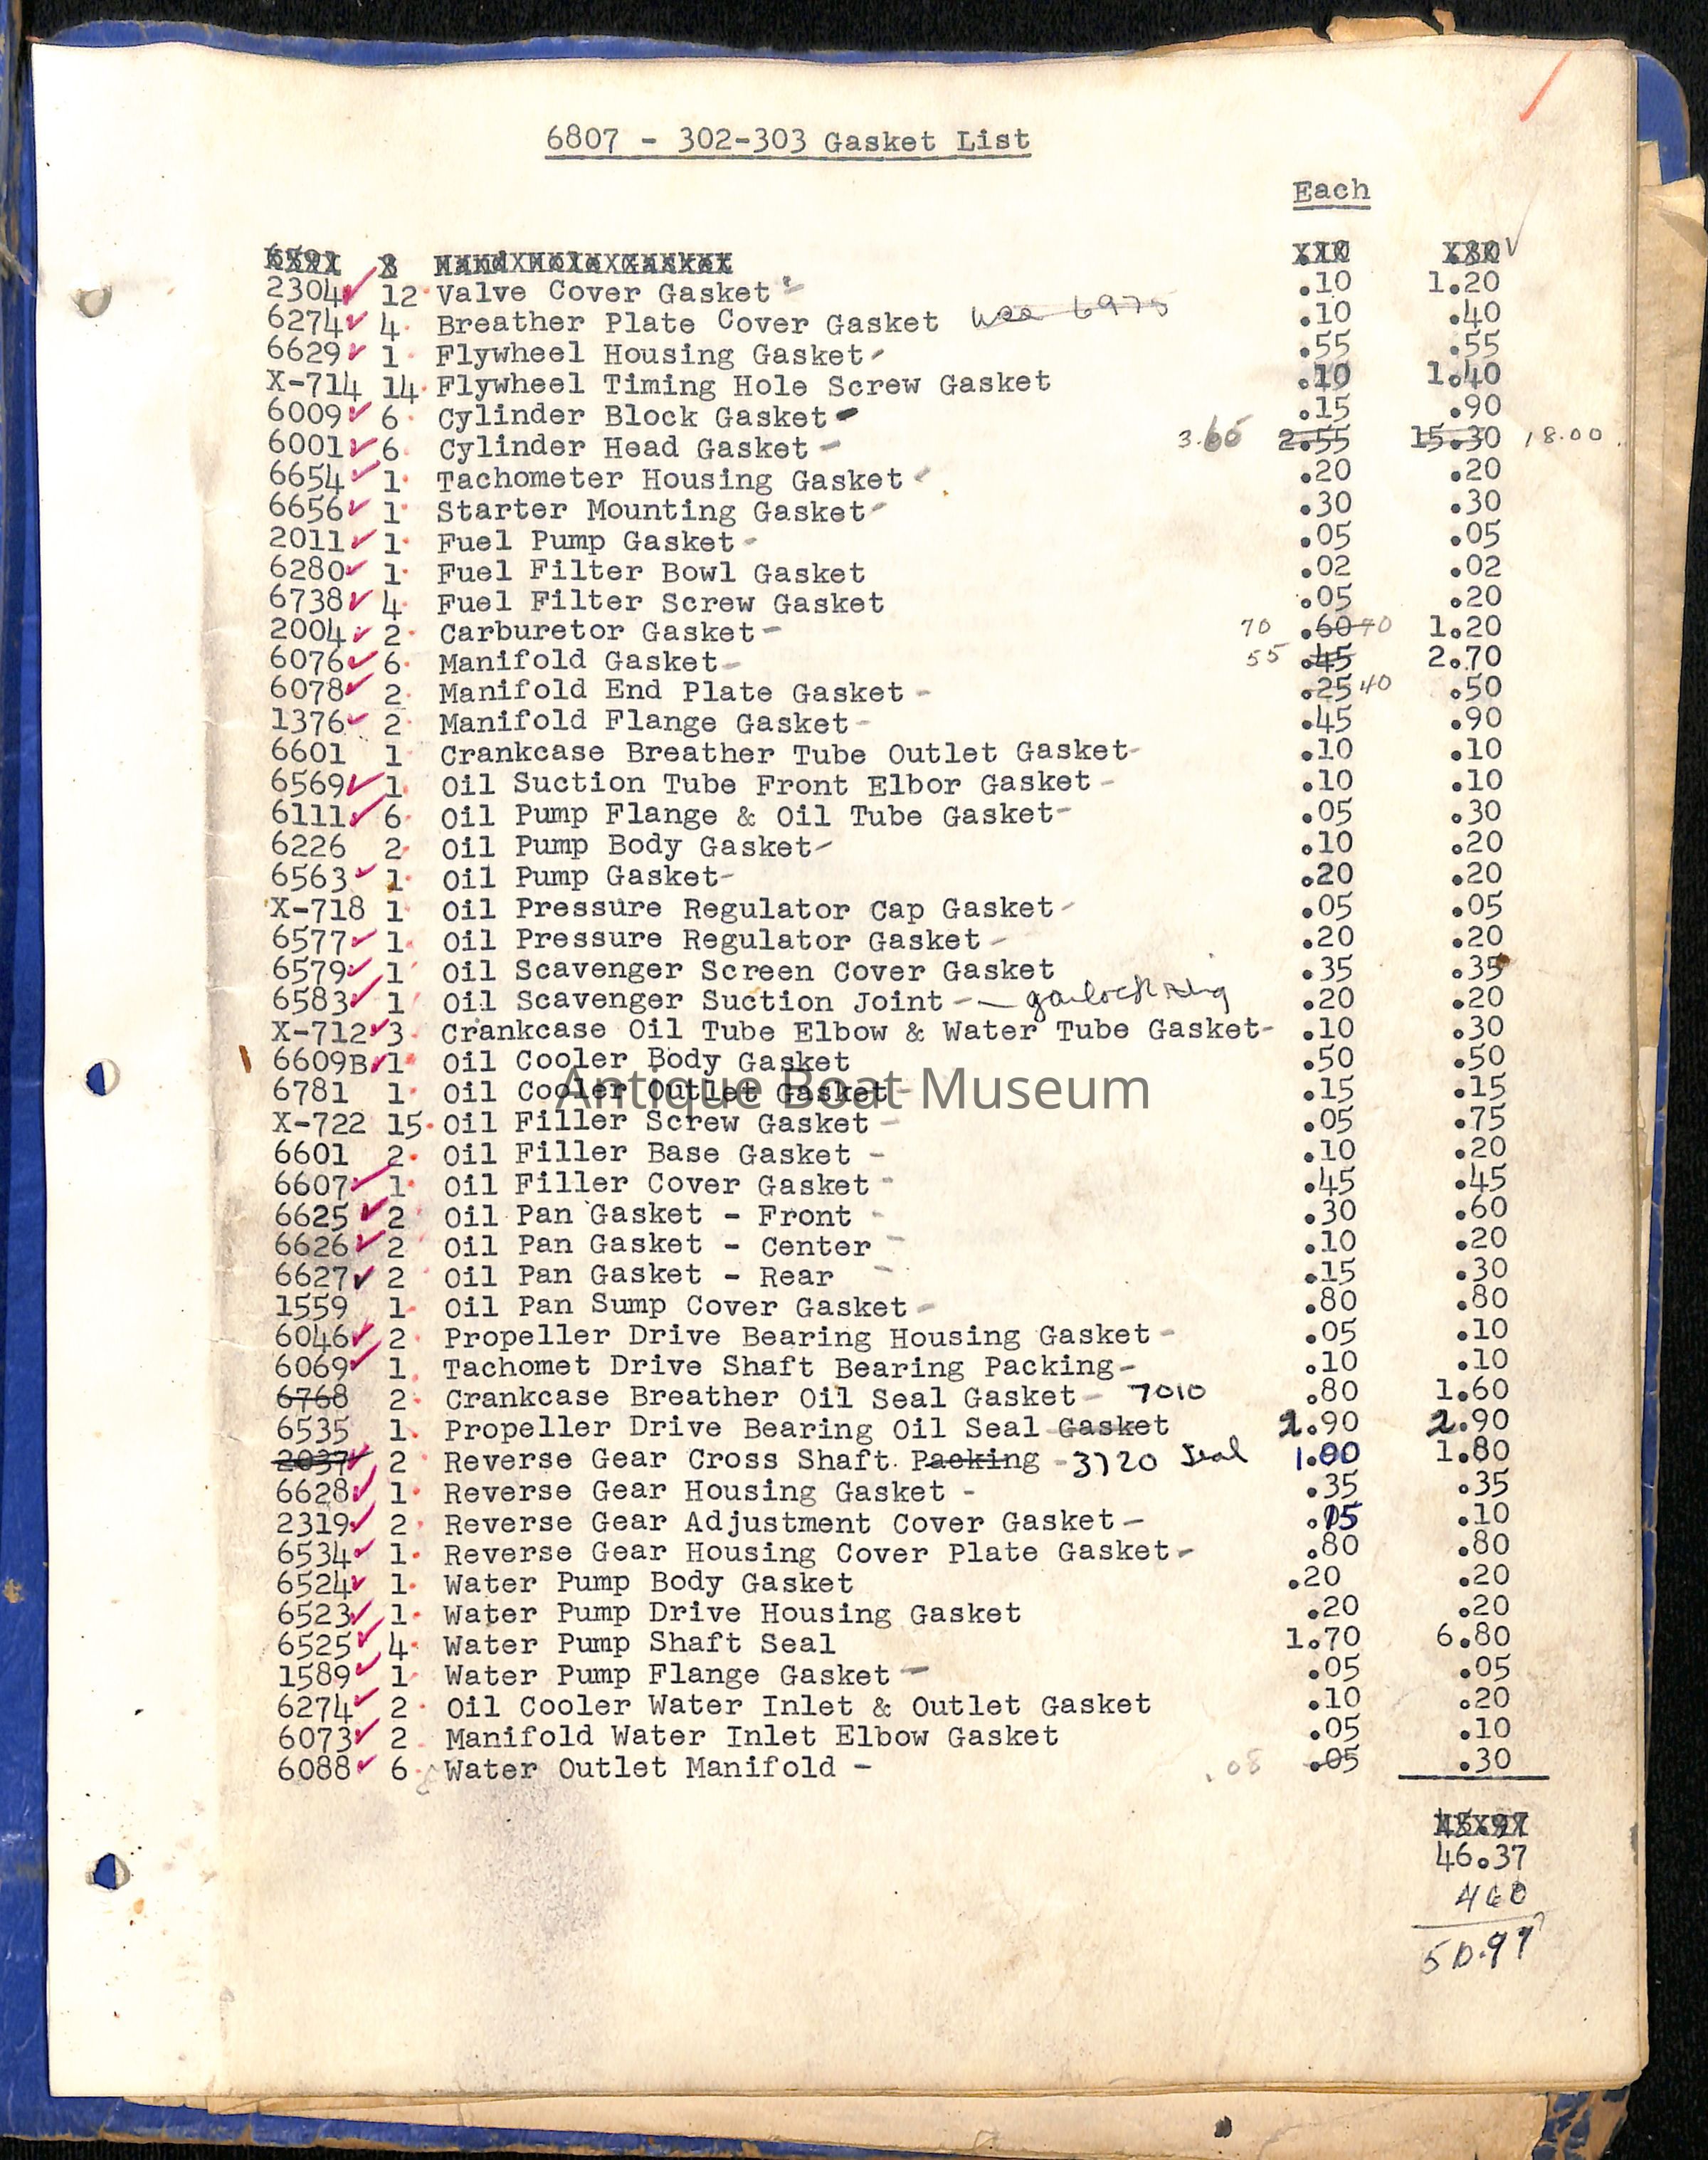 6807 - 302-303 Gasket List
Each
2304 12 Valve Cover Gasket .10 1.20
6274 4 Breather Plate Cover Gasket 6975 .10 .40
6629 1 Flywheel Housing Gasket .55 .55
X-714 14 Flywheel Timing Hole Screw Gasket .10 1.40
6009 6 Cylinder Block Gasket .15 .90
6001 6 Cylinder Head Gasket 2.55 15.30 18.00
6654 1 Tachometer Housing Gasket .20 .20
6656 1 Starter Mounting Gasket .30 .30
2011 1 Fuel Pump Gasket .05 .05
6280 1 Fuel Filter Bowl Gasket .02 .02
6738 4 Fuel Filter Screw Gasket .05 .20
2004 2 Carburetor Gasket 70 .60 70 1.20
6076 6 Manifold Gasket 55 .45 2.70
6078 2 Manifold End Plate Gasket .25 40 .50
1376 2 Manifold Flange Gasket .45 .90
6601 1 Crankcase Breather Tube Outlet Gasket .10 .10
6569 1 Oil Suction Tube Front Elbor Gasket .10 .10
6111 6 Oil Pump Flange & Oil Tube Gasket .05 .30
6226 2 Oil Pump Body Gasket .10 .20
6563 1 Oil Pump Gasket .20 .20
X-718 1 Oil Pressure Regulator Cap Gasket .05 .05
6577 1 Oil Pressure Regulator Gasket .20 .20
6579 1 Oil Scavenger Screen Cover Gasket .35 .35
6583 1 Oil Scavenger Suction Joint - garlock ring .20 .20
X-712 3 Crankcase Oil Tube Elbow & Water Tube Gasket .10 .30
6609B 1 Oil Cooler Body Gasket .50 .50
Antique Boat Museum
6781 1 Oil Cooler Outlet Gasket .15 .15
X-722 15 Oil Filler Screw Gasket .05 .75
6601 2 Oil Filler Base Gasket .10 .20
6607 1 Oil Filler Cover Gasket .45 .45
6625 2 Oil Pan Gasket - Front .30 .60
6626 2 Oil Pan Gasket - Center .10 .20
6627 2 Oil Pan Gasket - Rear .15 .30
1559 1 Oil Pan Sump Cover Gasket .80 .80
6046 2 Propeller Drive Bearing Housing Gasket .05 .10
6069 1 Tachomet Drive Shaft Bearing Packing .10 .10
6768 2 Crankcase Breather Oil Seal Gasket 7010 .80 1.60
6535 1 Propeller Drive Bearing Oil Seal Gasket 2.90 2.90
2037 2 Reverse Gear Cross Shaft Packing - 3720 Seal 1.00 1.80
6628 1 Reverse Gear Housing Gasket - .35 .35
2319 2 Reverse Gear Adjustment Cover Gasket .15 .10
6534 1 Reverse Gear Housing Cover Plate Gasket .80 .80
6524 1 Water Pump Body Gasket .20 .20
6523 1 Water Pump Drive Housing Gasket .20 .20
6525 4 Water Pump Shaft Seal 1.70 6.80
1589 1 Water Pump Flange Gasket .05 .05
6274 2 Oil Cooler Water Inlet & Outlet Gasket .10 .20
6073 2 Manifold Water Inlet Elbow Gasket .05 .10
6088 6 Water Outlet Manifold - .08 .05 .30
46.37
460
50.97